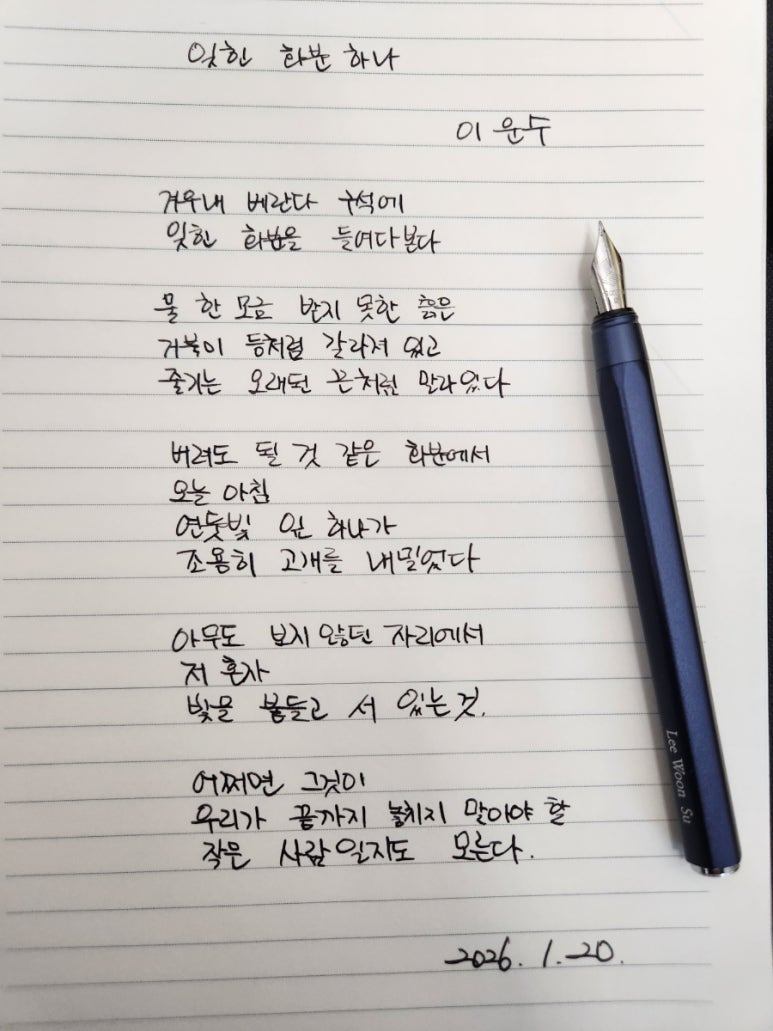 잊힌 화분 하나
이운수
겨우내 베란다 구석에
잊힌 화분을 들여다본다
물 한 모금 받지 못한 흙은
거북이 등처럼 갈라져 있고
줄기는 오래된 끈처럼 말라있다
버려도 될 것 같은 화분에서
오늘 아침
연둣빛 잎 하나가
조용히 고개를 내밀었다
아무도 보지 않던 자리에서
저 혼자
빛을 붙들고 서 있는 것.
어쩌면 그것이
우리가 끝까지 놓치지 말아야 할
작은 사람일지도 모른다.
2026. 1. 20.
Lee Woon Su